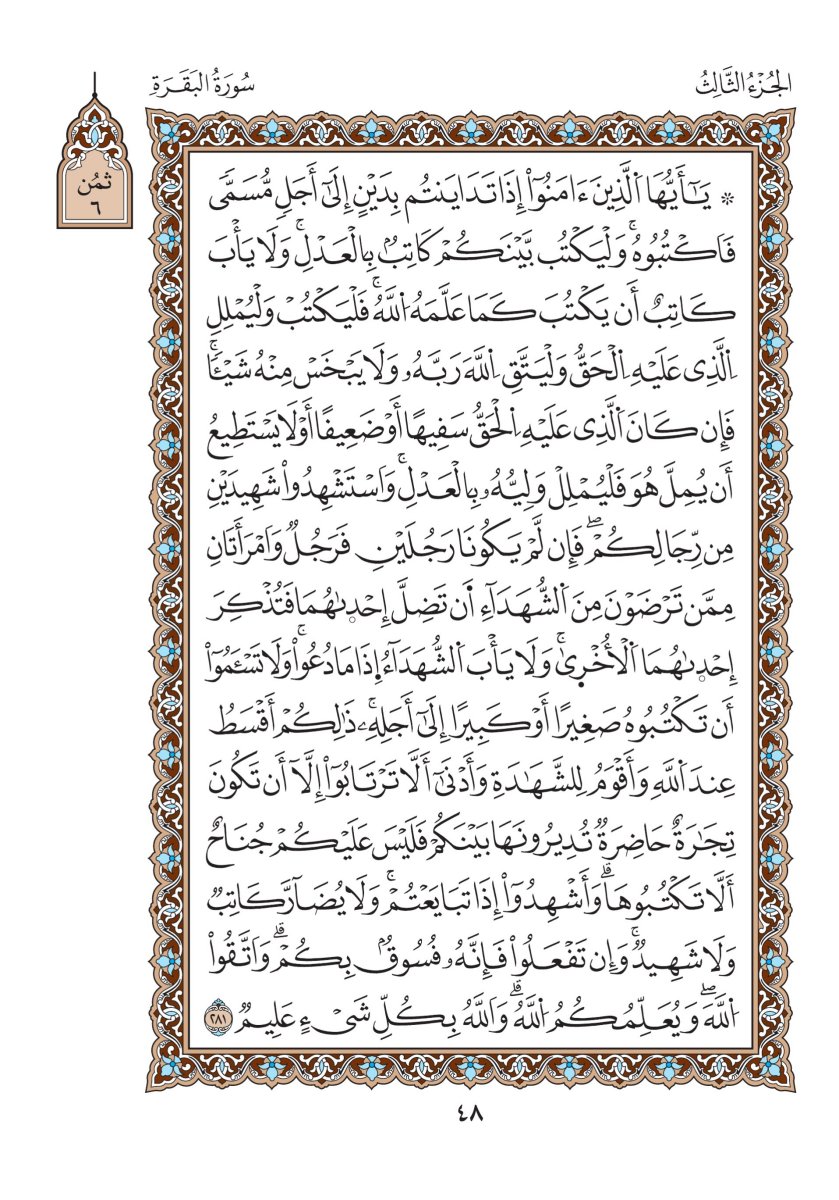 الجُزْءُ الثَّالِثُ
سُورَةُ البَقَرَةِ
ثمُن
٦
۞ يَـٰٓأَيُّهَا اَ۬لَّذِينَ ءَامَنُوٓاْ إِذَا تَدَايَنتُم بِدَيْنٍ إِلَىٰٓ أَجَلٖ مُّسَمّٗى
فَاَكْتُبُوهُۚ وَلْيَكْتُب بَّيْنَكُمْ كَاتِبُۢ بِالْعَدْلِۚ وَلَا يَأْبَ
كَاتِبٌ أَن يَكْتُبَ كَمَا عَلَّمَهُ اُ۬للَّهُۚ فَلْيَكْتُبْ وَلْيُمْلِلِ
اِ۬لَّذِى عَلَيْهِ اِ۬لْحَقُّ وَلْيَتَّقِ اِ۬للَّهَ رَبَّهُۥ وَلَا يَبْخَسْ مِنْهُ شَيْـٔٗاۚ
فَإِن كَانَ اَ۬لَّذِى عَلَيْهِ اِ۬لْحَقُّ سَفِيهًا أَوْ ضَعِيفًا أَوْ لَا يَسْتَطِيعُ
أَن يُمِلَّ هُوَ فَلْيُمْلِلْ وَلِيُّهُۥ بِالْعَدْلِۚ وَاَسْتَشْهِدُواْ شَهِيدَيْنِ
مِن رِّجَالِكُمْۖ فَإِن لَّمْ يَكُونَا رَجُلَيْنِ فَرَجُلٞ وَاَمْرَأَتَانِ
مِمَّن تَرْضَوْنَ مِنَ اَ۬لشُّهَدَآءِ اَ۬ن تَضِلَّ إِحْدٜىٰهُمَا فَتُذْكِرَ
إِحْدٜىٰهُمَا اَ۬لْأُخْرٜىٰۚ وَلَا يَأْبَ اَ۬لشُّهَدَآءُ اِ۬ذَا مَا دُعُواْۚ وَلَا تَسْـَٔمُوٓاْ
أَن تَكْتُبُوهُ صَغِيرًا أَوْ كَبِيرًا إِلَىٰٓ أَجَلِهِۦۚ ذَٰلِكُمْ أَقْسَطُ
عِندَ اَ۬للَّهِ وَأَقْوَمُ لِلشَّهَٰدَةِ وَأَدْنَىٰٓ أَلَّا تَرْتَابُوٓاْ إِلَّآ أَن تَكُونَ
تِجَٰرَةٌ حَاضِرَةٞ تُدِيرُونَهَا بَيْنَكُمْ فَلَيْسَ عَلَيْكُمْ جُنَاحٌ
أَلَّا تَكْتُبُوهَاۗ وَأَشْهِدُوٓاْ إِذَا تَبَايَعْتُمْۚ وَلَا يُضَآرَّ كَاتِبٞ
وَلَا شَهِيدٞۚ وَإِن تَفْعَلُواْ فَإِنَّهُۥ فُسُوقُۢ بِكُمْۗ وَاَتَّقُواْ
اُ۬للَّهَۖ وَيُعَلِّمُكُمُ اُ۬للَّهُۗ وَاَللَّهُ بِكُلِّ شَىْءٍ عَلِيمٞ ٢٨١
٤٨